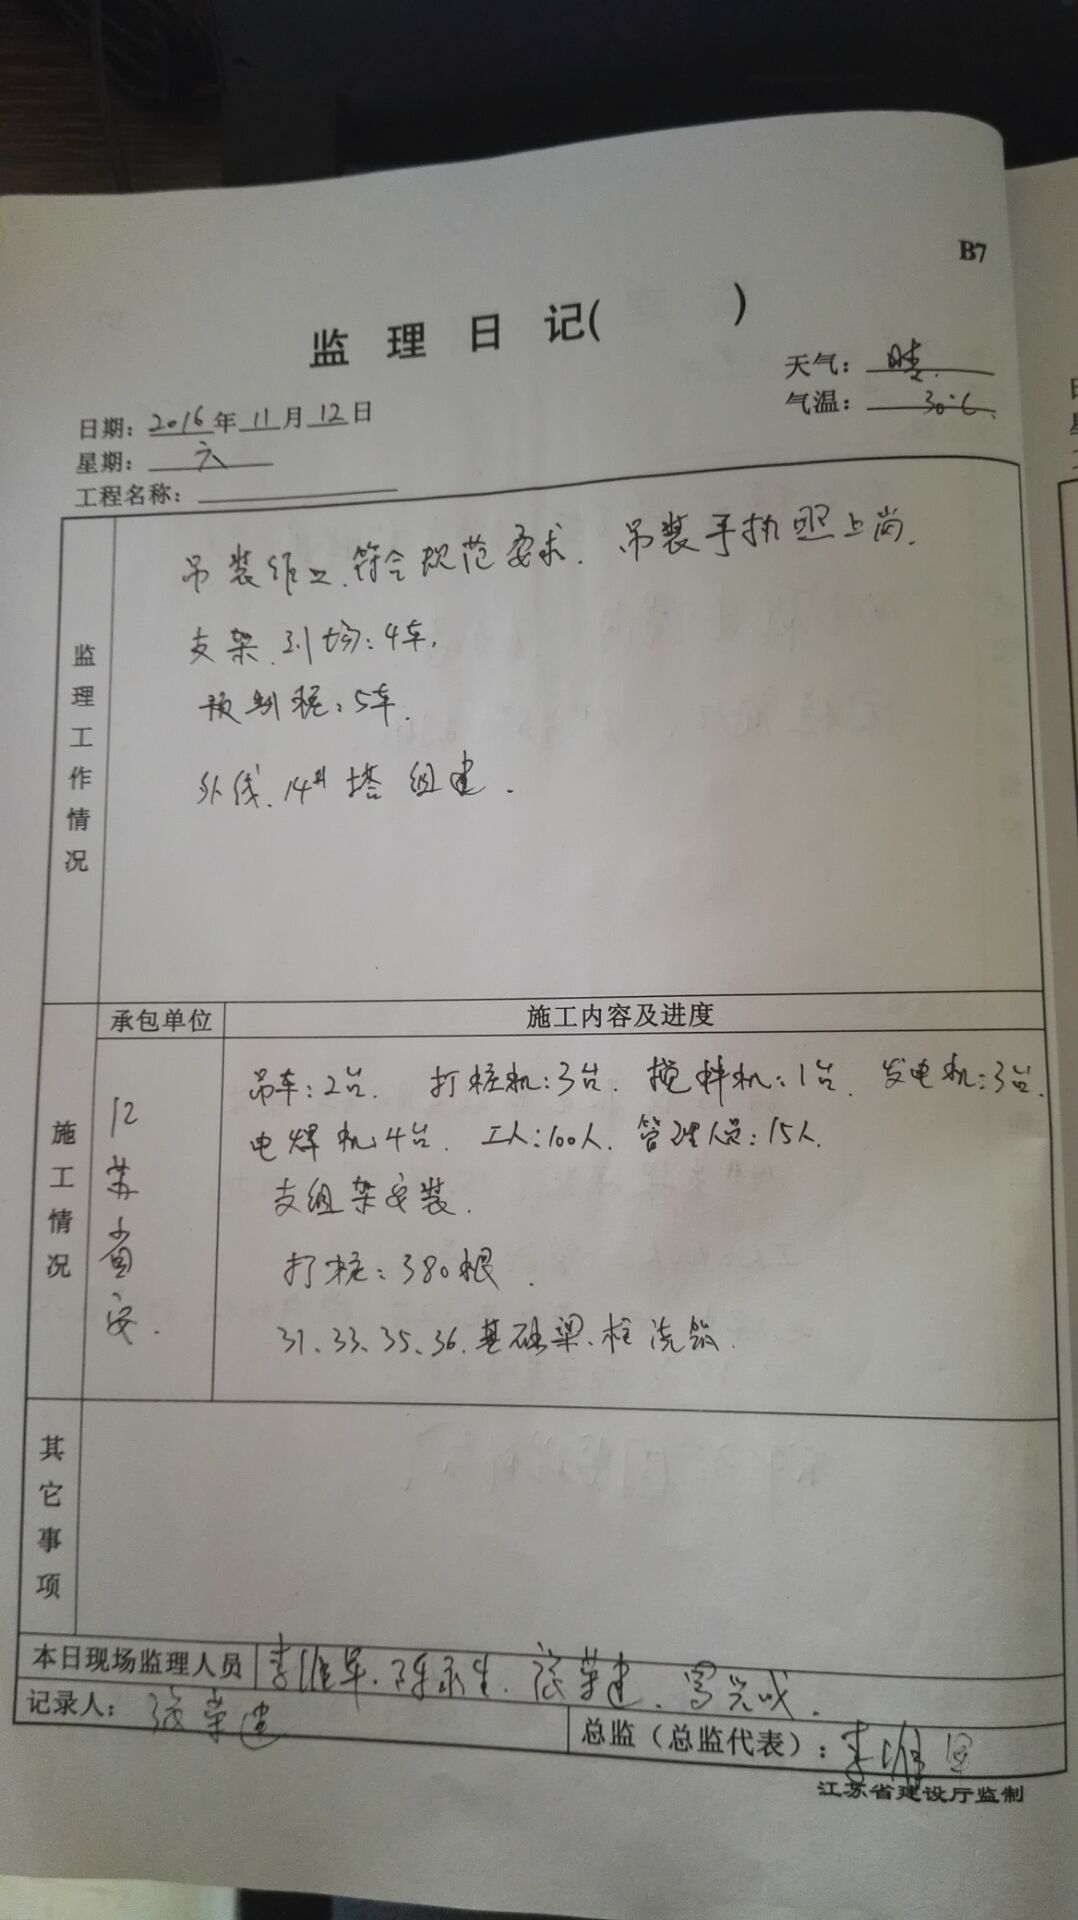 B7
监 理 日 记( )
天气：晴.
气温：30℃.
日期：2016年11月12日
星期：六
工程名称：
监理工作情况
吊装作业.符合规范要求. 吊装手执照上岗.
支架.到场:4车.
预制桩:5车.
外线.14#塔组建.
施工情况
承包单位
施工内容及进度
江苏省安.
吊车:2台. 打桩机:3台. 搅拌机:1台. 发电机:3台.
电焊机4台. 工人:100人. 管理人员:15人.
支组架安装.
打桩:380根.
31、33、35、36.基础梁、柱浇筑.
其它事项
本日现场监理人员 李维军. 陈永生. 张荣建.
记录人：张荣建
总监（总监代表）：李维军
江苏省建设厅监制